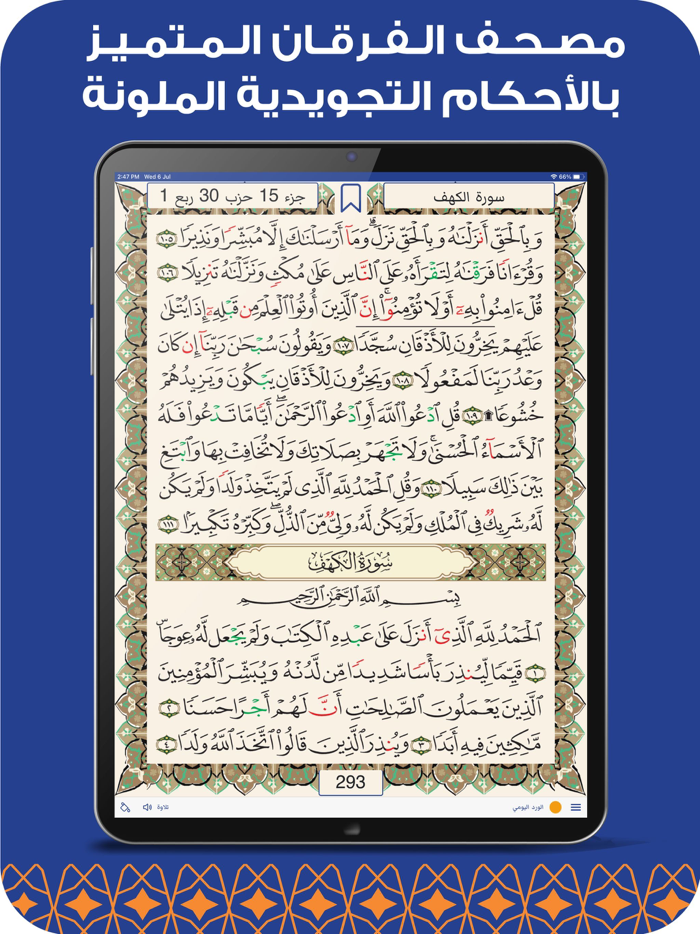 مصحف الفرقان المتميز
بالأحكام التجويدية الملونة
2:47 PM Wed 6 Jul
66%
سورة الكهف
جزء 15 حزب 30 ربع 1
وَبِٱلْحَقِّ أَنزَلْنَٰهُ وَبِٱلْحَقِّ نَزَلَۗ وَمَآ أَرْسَلْنَٰكَ إِلَّا مُبَشِّرًا وَنَذِيرًا ١٠٥
وَقُرْءَانًا فَرَقْنَٰهُ لِتَقْرَأَهُۥ عَلَى ٱلنَّاسِ عَلَىٰ مُكْثٍ وَنَزَّلْنَٰهُ تَنزِيلًا ١٠٦
قُلْ ءَامِنُوا۟ بِهِۦٓ أَوْ لَا تُؤْمِنُوٓا۟ۚ إِنَّ ٱلَّذِينَ أُوتُوا۟ ٱلْعِلْمَ مِن قَبْلِهِۦٓ إِذَا يُتْلَىٰ
عَلَيْهِمْ يَخِرُّونَ لِلْأَذْقَانِ سُجَّدًا ١٠٧ وَيَقُولُونَ سُبْحَٰنَ رَبِّنَآ إِن كَانَ
وَعْدُ رَبِّنَا لَمَفْعُولًا ١٠٨ وَيَخِرُّونَ لِلْأَذْقَانِ يَبْكُونَ وَيَزِيدُهُمْ
خُشُوعًا ۩ ١٠٩ قُلِ ٱدْعُوا۟ ٱللَّهَ أَوِ ٱدْعُوا۟ ٱلرَّحْمَٰنَۖ أَيًّا مَّا تَدْعُوا۟ فَلَهُ
ٱلْأَسْمَآءُ ٱلْحُسْنَىٰۚ وَلَا تَجْهَرْ بِصَلَاتِكَ وَلَا تُخَافِتْ بِهَا وَٱبْتَغِ
بَيْنَ ذَٰلِكَ سَبِيلًا ١١٠ وَقُلِ ٱلْحَمْدُ لِلَّهِ ٱلَّذِى لَمْ يَتَّخِذْ وَلَدًا وَلَمْ يَكُن
لَّهُۥ شَرِيكٌ فِى ٱلْمُلْكِ وَلَمْ يَكُن لَّهُۥ وَلِىٌّ مِّنَ ٱلذُّلِّۖ وَكَبِّرْهُ تَكْبِيرًا ١١١
سُورَةُ الكَهْفِ
بِسْمِ ٱللَّهِ ٱلرَّحْمَٰنِ ٱلرَّحِيمِ
ٱلْحَمْدُ لِلَّهِ ٱلَّذِىٓ أَنزَلَ عَلَىٰ عَبْدِهِ ٱلْكِتَٰبَ وَلَمْ يَجْعَل لَّهُۥ عِوَجَاۜ
١ قَيِّمًا لِّيُنذِرَ بَأْسًا شَدِيدًا مِّن لَّدُنْهُ وَيُبَشِّرَ ٱلْمُؤْمِنِينَ
ٱلَّذِينَ يَعْمَلُونَ ٱلصَّٰلِحَٰتِ أَنَّ لَهُمْ أَجْرًا حَسَنًا ٢
مَّٰكِثِينَ فِيهِ أَبَدًا ٣ وَيُنذِرَ ٱلَّذِينَ قَالُوا۟ ٱتَّخَذَ ٱللَّهُ وَلَدًا ٤
293
الورد اليومي
تلاوة